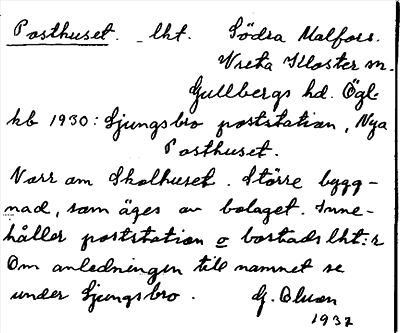 Posthuset. lht. Södra Malfors.
Vreta Kloster sn.
Gullbergs hd. Ögl.
kb 1930: Ljungsbro poststation, Nya
Posthuset.
Norr om Skolhuset. Större bygg-
nad, som äges av bolaget. Inne-
håller poststation o bostadslht:r
Om anledningen till namnet se
under Ljungsbro. G. Bluon
1932